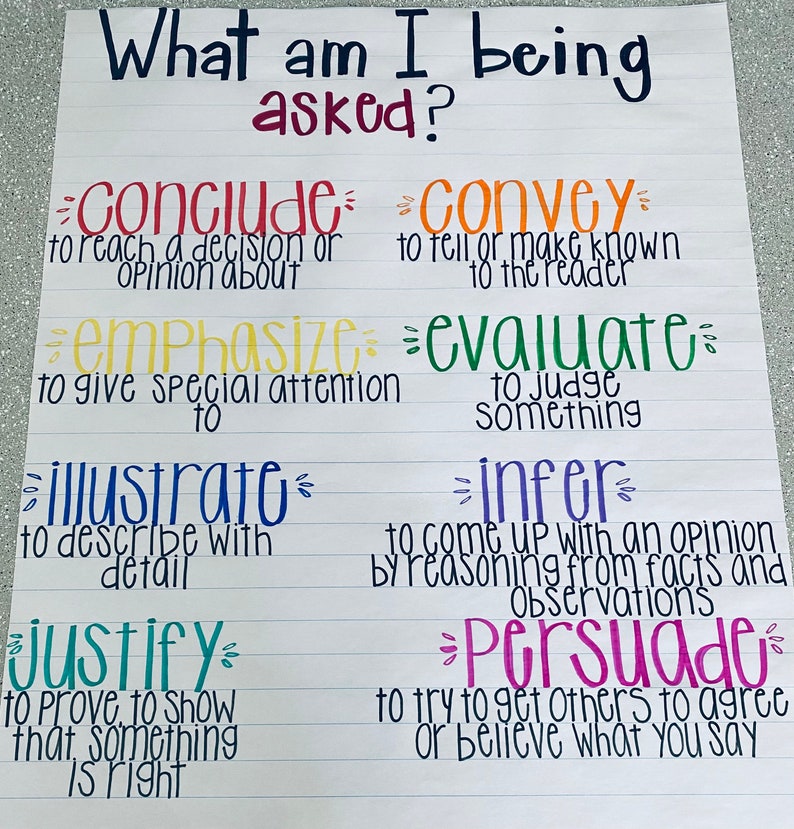 What am I being
asked?
conclude
to reach a decision or
opinion about
convey
to tell or make known
to the reader
emphasize
to give special attention
to
evaluate
to judge
something
illustrate
to describe with
detail
infer
to come up with an opinion
by reasoning from facts and
observations
justify
to prove, to show
that something
is right
persuade
to try to get others to agree
or believe what you say